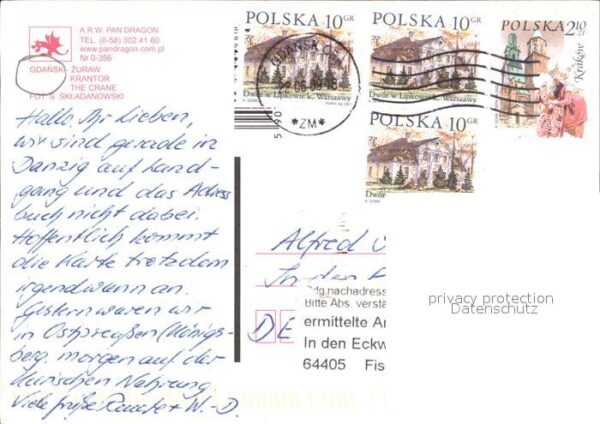 A.R.W. PAN DRAGON
TEL. (0-58) 302 41 60
www.pandragon.com.pl
Nr 0-356
GDAŃSK - ŻURAW
KRANTOR
THE CRANE
FOT. S. SKŁADANOWSKI
POLSKA 10 GR
Dwór w Lipkowie k. Warszawy
POLSKA 10 GR
Dwór w Lipkowie k. Warszawy
POLSKA 2,10
Kraków
POLSKA 10 GR
Dwór
GDAŃSK
*ZM*
Hallo Ihr Lieben,
wir sind gerade in
Danzig auf Land-
gang und das Adress
buch nicht dabei.
Hoffentlich kommt
die Karte trotzdem
irgendwann an.
Gestern waren wir
in Ostpreußen (Königs-
berg. morgen auf der
Kurischen Nehrung.
Viele Grüße + W.-D.
Alfred
In den
DE
Sdg.nachadress
Bitte Abs. verstä
ermittelte An
In den Eckw
64405 Fis
privacy protection
Datenschutz